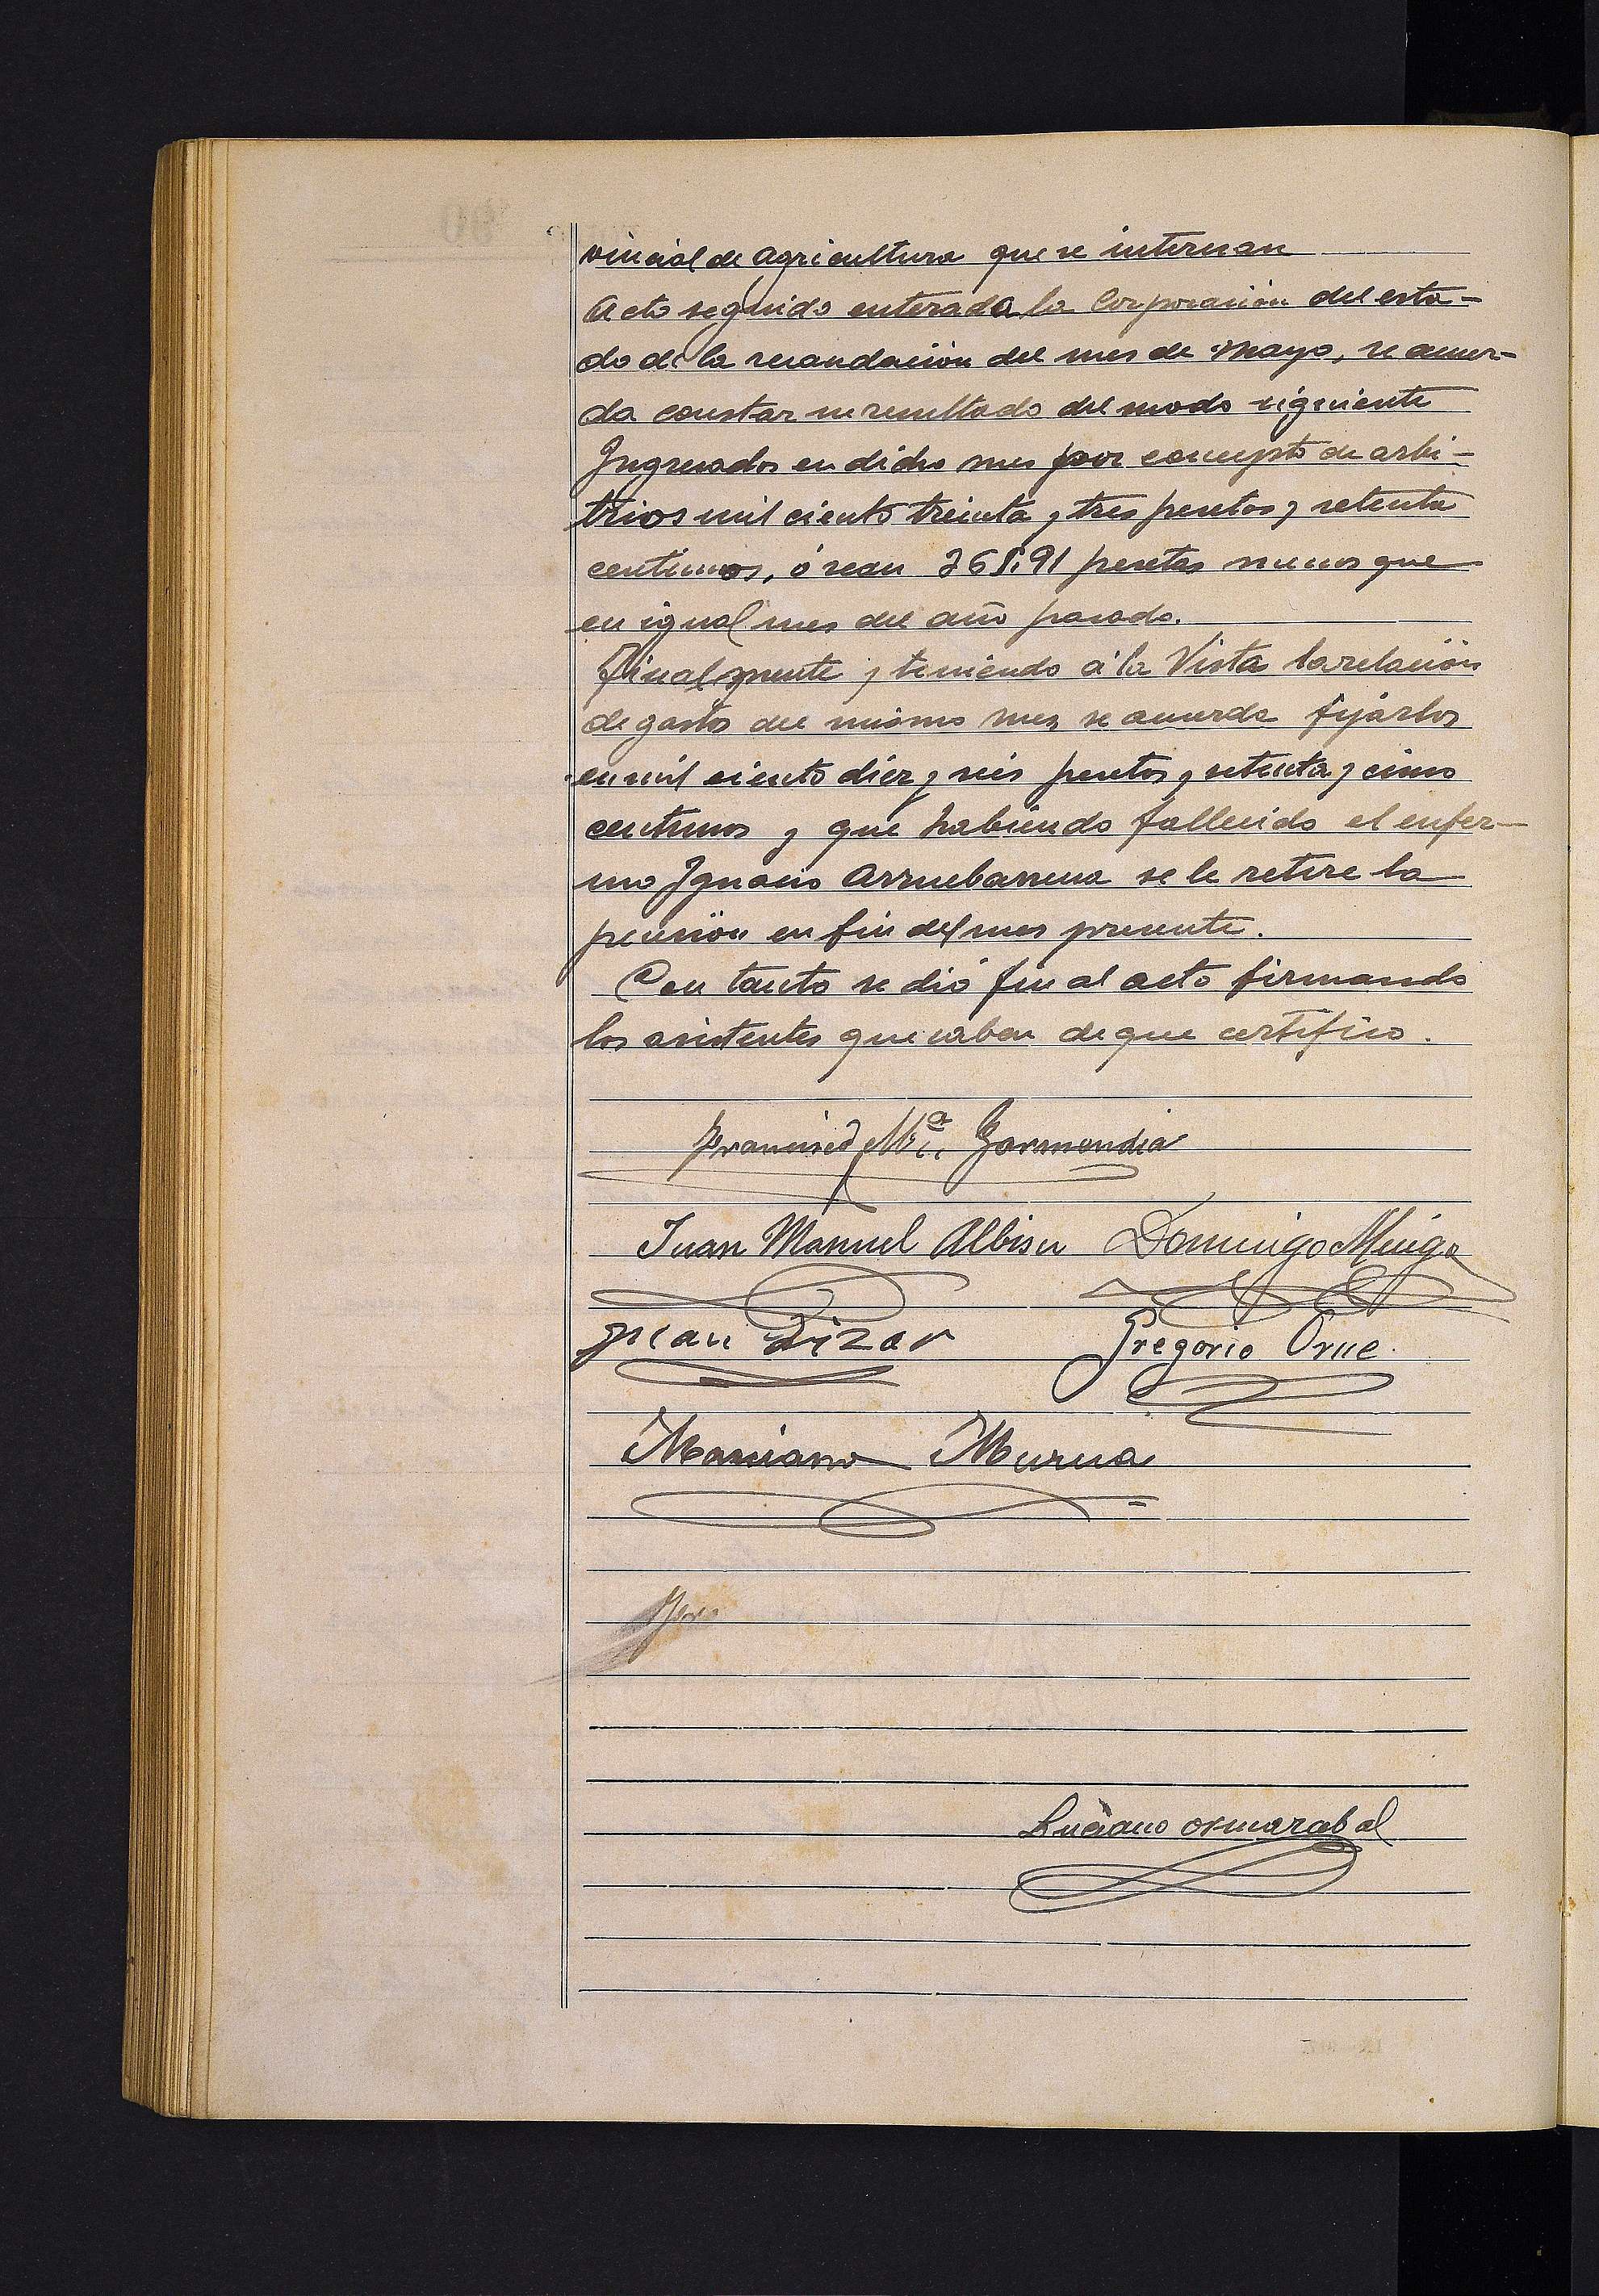 vincial de agricultura que se internan
Acto seguido enterada la Corporación del esta-
do de la recaudación del mes de Mayo, se acuer-
da constar su resultado del modo siguiente
Ingresados en dicho mes por concepto de arbi-
trios mil ciento treinta y tres pesetas y setenta
centimos, ó sean 265,91 pesetas menos que
en igual mes del año pasado.
Finalmente y teniendo á la Vista la relación
de gastos del mismo mes se acuerda fijarlos
en mil ciento diez y seis pesetas y setenta y cinco
centimos y que habiendo fallecido el enfer-
mo Ignacio Arruebarrena se le retire la
pensión en fin del mes presente.
Con tanto se dió fin al acto firmando
los asistentes que saben de que certifico.
Francisco Mª. Garmendia
Juan Manuel Albisu Domingo Mugica
Juan Lizar Gregorio Orue.
Mariano Murua
Luciano Osinarabal